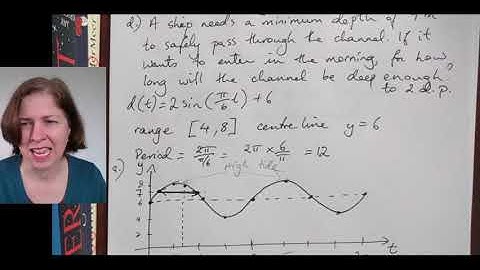 d.) A ship needs a minimum depth of 7m
to safely pass through the channel. If it
wants to enter in the morning, for how
long will the channel be deep enough?
to 2 d.p.
d(t)=2sin(π/6 t)+6
range [4,8] centre line y=6
Period = 2π/(π/6) = 2π × 6/π = 12
a.) y High tide
8
7
6
4
2
t